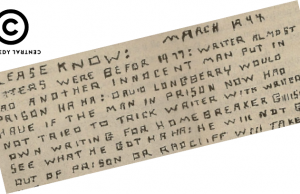 CENTRAL
MARCH 1994
EASE KNOW:
TTERS WERE BEFOR 1977: WRITER ALMOST
AD ANOTHER INNOCENT MAN PUT IN
PRISON HA HA: DAVID LONGBERRY WOULD
HAVE IF THE MAN IN PRISON NOW HAD
NOT TRIED TO TRICK WRITER WITH WRITER
OWN WRITING FOR HOMEBREAKER
SEE WHAT HE GOT HA HA: HE WILL NOT
OUT OF PRISON OR RADCLIFF WILL TAKE